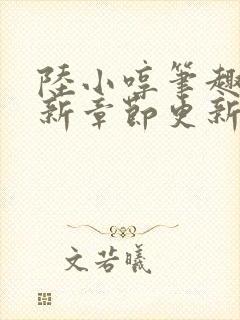 陸小啍筆趣
新章節更新
文若曦